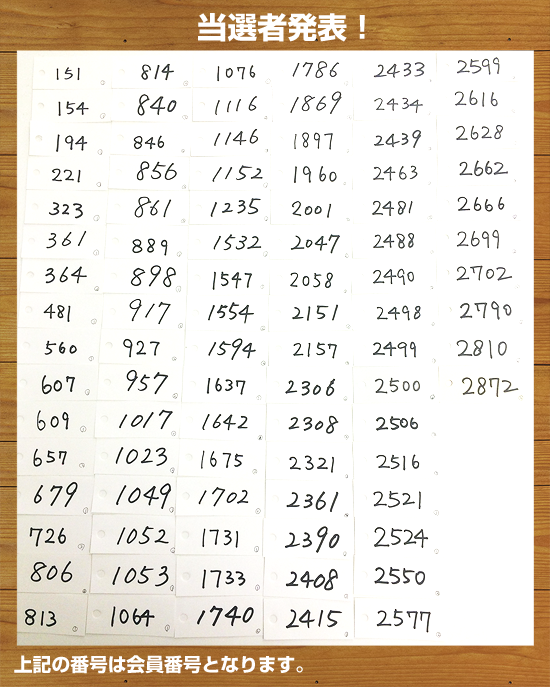 当選者発表！
151 814 1076 1786 2433 2599
154 840 1116 1869 2434 2616
194 846 1146 1897 2439 2628
221 856 1152 1960 2463 2662
323 861 1235 2001 2481 2666
361 889 1532 2047 2488 2699
364 898 1547 2058 2490 2702
481 917 1554 2151 2498 2790
560 927 1594 2157 2499 2810
607 957 1637 2306 2500 2872
609 1017 1642 2308 2506
657 1023 1675 2321 2516
679 1049 1702 2361 2521
726 1052 1731 2390 2524
806 1053 1733 2408 2550
813 1064 1740 2415 2577
上記の番号は会員番号となります。